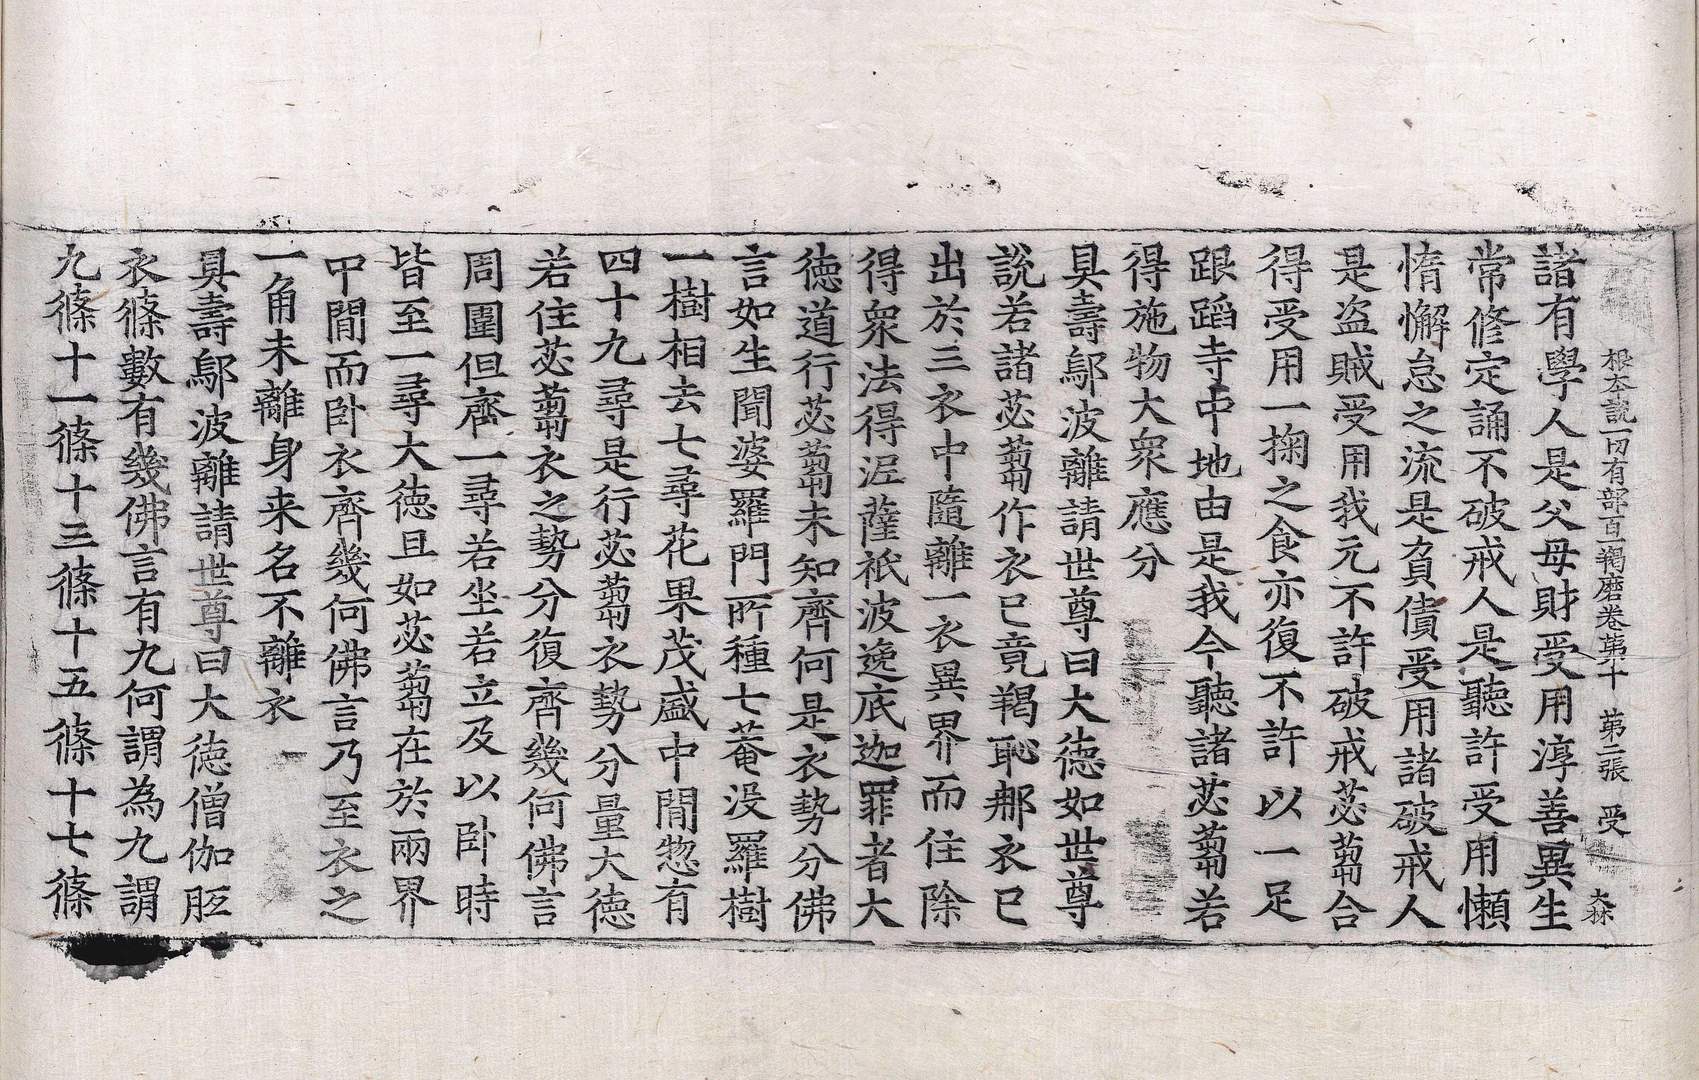 根本說一切有部百一羯磨卷第十 第二張 受 大林
諸有學人是父母財受用淳善異生
常修定誦不破戒人是聽許受用懶
惰懈怠之流是負債受用諸破戒人
是盜賊受用我元不許破戒苾蒭合
得受用一掬之食亦復不許以一足
跟蹈寺中地由是我今聽諸苾蒭若
得施物大衆應分
具壽鄔波離請世尊曰大德如世尊
說若諸苾蒭作衣已竟羯恥那衣已
出於三衣中隨離一衣異界而住除
得衆法得泥薩祇波逸底迦罪者大
德道行苾蒭未知齊何是衣勢分佛
言如生聞婆羅門所種七菴没羅樹
一樹相去七尋花果茂盛中間惣有
四十九尋是行苾蒭衣勢分量大德
若住苾蒭衣之勢分復齊幾何佛言
周圍但齊一尋若坐若立及以卧時
皆至一尋大德且如苾蒭在於兩界
中間而卧衣齊幾何佛言乃至衣之
一角未離身来名不離衣
具壽鄔波離請世尊曰大德僧伽胝
衣條數有幾佛言有九何謂為九謂
九條十一條十三條十五條十七條